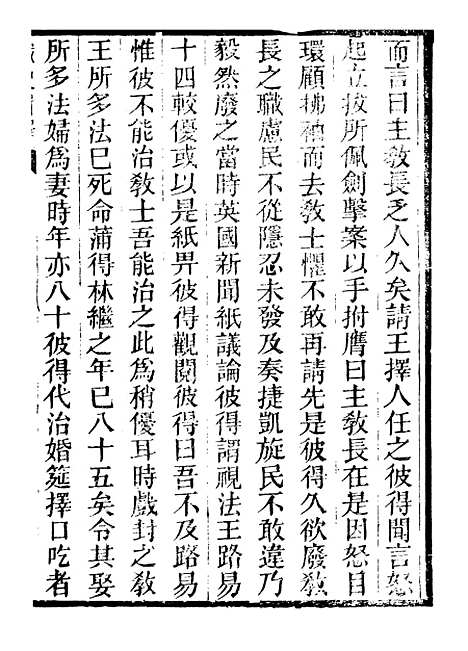 而言曰主教長乏人久矣請王擇人任之彼得聞言怒
起立拔所佩劍擊案以手拊膺曰主教長在是因怒目
環顧拂袖而去教士懼不敢再請先是彼得久欲廢教
長之職慮民不從隱忍未發及奏捷凱旋民不敢違乃
毅然廢之當時英國新聞紙議論彼得謂視法王路易
十四較優或以是紙畀彼得觀閱彼得曰吾不及路易
惟彼不能治教士吾能治之此為稍優耳時戲封之教
王所多法巳死命蒲得林繼之年巳八十五矣令其娶
所多法婦為妻時年亦八十彼得代治婚筵擇口吃者